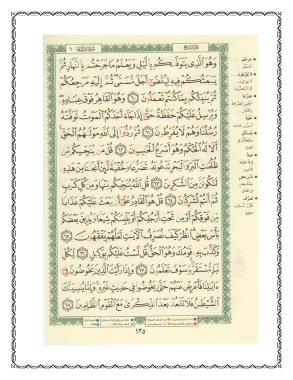 وَهُوَ ٱلَّذِى يَتَوَفَّىٰكُم بِٱلَّيْلِ وَيَعْلَمُ مَا جَرَحْتُم بِٱلنَّهَارِ ثُمَّ
يَبْعَثُكُمْ فِيهِ لِيُقْضَىٰٓ أَجَلٌ مُّسَمًّى ثُمَّ إِلَيْهِ مَرْجِعُكُمْ
ثُمَّ يُنَبِّئُكُم بِمَا كُنتُمْ تَعْمَلُونَ ٦٠ وَهُوَ ٱلْقَاهِرُ فَوْقَ عِبَادِهِۦ
وَيُرْسِلُ عَلَيْكُمْ حَفَظَةً حَتَّىٰٓ إِذَا جَآءَ أَحَدَكُمُ ٱلْمَوْتُ تَوَفَّتْهُ
رُسُلُنَا وَهُمْ لَا يُفَرِّطُونَ ٦١ ثُمَّ رُدُّوٓا۟ إِلَى ٱللَّهِ مَوْلَىٰهُمُ ٱلْحَقِّ
أَلَا لَهُ ٱلْحُكْمُ وَهُوَ أَسْرَعُ ٱلْحَٰسِبِينَ ٦٢ قُلْ مَن يُنَجِّيكُم مِّن
ظُلُمَٰتِ ٱلْبَرِّ وَٱلْبَحْرِ تَدْعُونَهُۥ تَضَرُّعًا وَخُفْيَةً لَّئِنْ أَنجَىٰنَا مِنْ هَٰذِهِۦ
لَنَكُونَنَّ مِنَ ٱلشَّٰكِرِينَ ٦٣ قُلِ ٱللَّهُ يُنَجِّيكُم مِّنْهَا وَمِن كُلِّ كَرْبٍ
ثُمَّ أَنتُمْ تُشْرِكُونَ ٦٤ قُلْ هُوَ ٱلْقَادِرُ عَلَىٰٓ أَن يَبْعَثَ عَلَيْكُمْ عَذَابًا
مِّن فَوْقِكُمْ أَوْ مِن تَحْتِ أَرْجُلِكُمْ أَوْ يَلْبِسَكُمْ شِيَعًا وَيُذِيقَ بَعْضَكُم
بَأْسَ بَعْضٍ ٱنظُرْ كَيْفَ نُصَرِّفُ ٱلْءَايَٰتِ لَعَلَّهُمْ يَفْقَهُونَ ٦٥
وَكَذَّبَ بِهِۦ قَوْمُكَ وَهُوَ ٱلْحَقُّ قُل لَّسْتُ عَلَيْكُم بِوَكِيلٍ ٦٦ لِّكُلِّ
نَبَإٍ مُّسْتَقَرٌّ وَسَوْفَ تَعْلَمُونَ ٦٧ وَإِذَا رَأَيْتَ ٱلَّذِينَ يَخُوضُونَ فِىٓ
ءَايَٰتِنَا فَأَعْرِضْ عَنْهُمْ حَتَّىٰ يَخُوضُوا۟ فِى حَدِيثٍ غَيْرِهِۦ وَإِمَّا يُنسِيَنَّكَ
ٱلشَّيْطَٰنُ فَلَا تَقْعُدْ بَعْدَ ٱلذِّكْرَىٰ مَعَ ٱلْقَوْمِ ٱلظَّٰلِمِينَ ٦٨
١٣٥